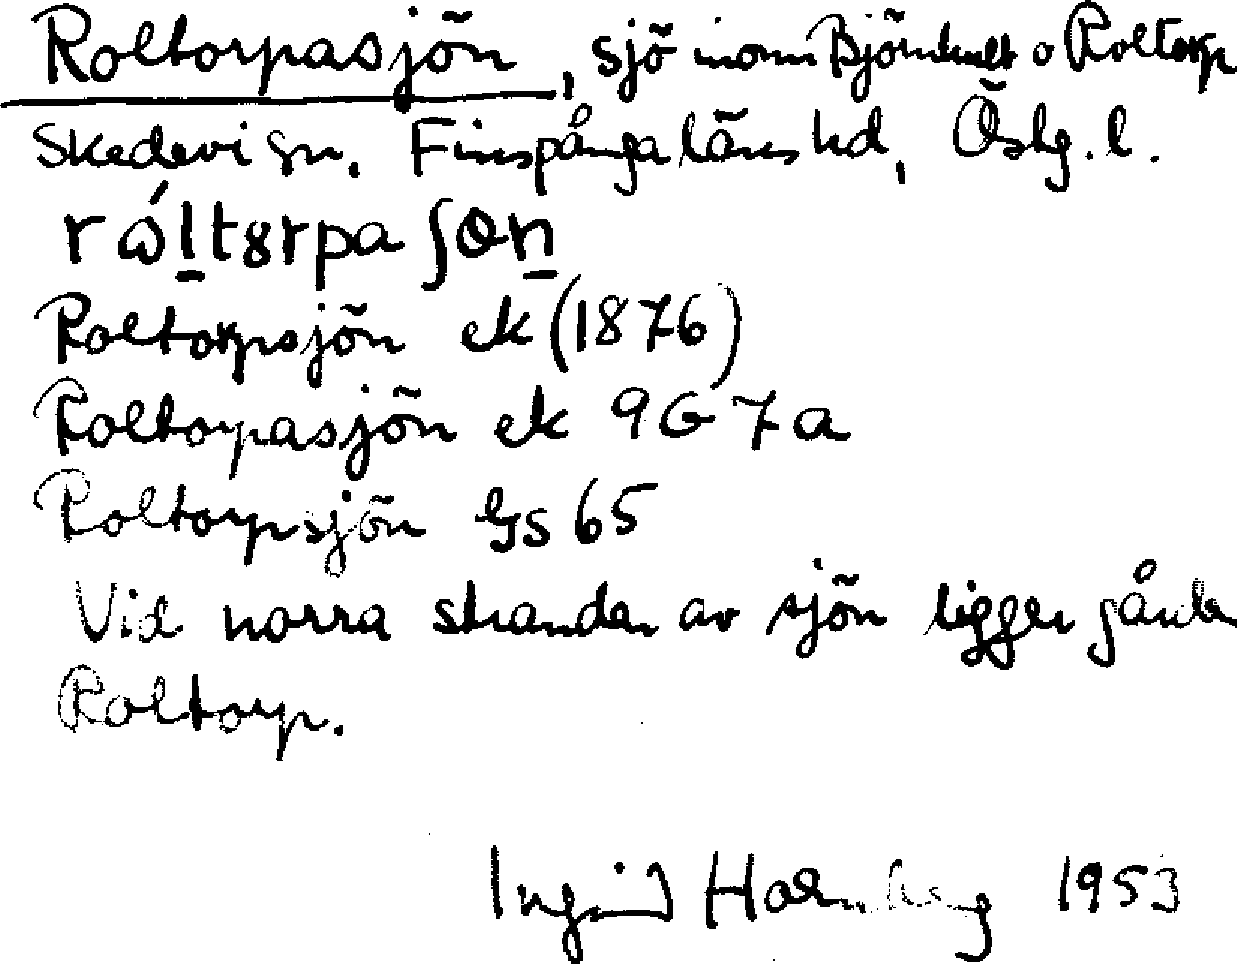 Roltorpasjön, sjö inom Björnhult o Roltorp
Skedevi sn, Finspånga läns hd, Östg. l.
rώltȣrpaʃɵn
Roltorpsjön ek (1876)
Roltorpasjön ek 9G7a
Roltorpsjön GS 65
Vid norra stranden av sjön ligger gården
Roltorp.
Ingrid Holmberg 1953